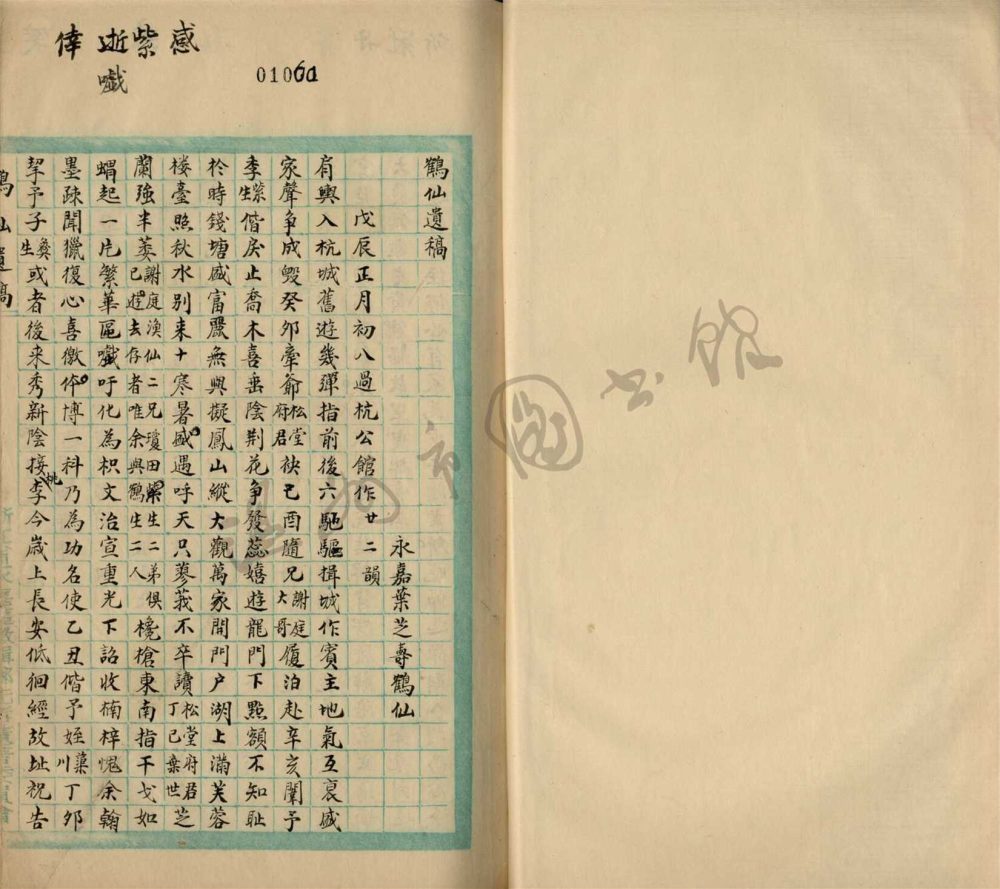 感紫逝倖
囐
0106a
鶴仙遺稿
永嘉葉芝壽鶴仙
戊辰正月初八過杭公館作廿二韻
肩輿入杭城舊遊幾彈指前後六馳驅揖城作賓主地氣互衰盛
家聲爭成毀癸夘牽爺松堂府君袂己酉隨兄謝庭大哥履泊赴辛亥闈予
季紫生偕戾止喬木喜垂陰荆花爭發蕊嬉遊龍門下點額不知耻
於時錢塘盛富麗無與擬鳳山縱大觀萬家開門户湖上滿芙蓉
楼臺照秋水别来十寒暑盛遇呼天只蓼莪不卒讀松堂府君丁巳棄世芝
蘭強半萎謝庭渙仙二兄瓊田紫生二弟俱已逝去存者唯余與鶴生二人欃槍東南指干戈如
蝟起一片繁華區囐吁化為枳文治宣重光下詔收楠梓愧余翰
墨疎聞獵復心喜儌倖博一科乃為功名使乙丑偕予姪蕖川丁夘
挈予子彜生或者後来秀新陰接桃李今歲上長安低徊經故址祝告
鶴仙遺稿
圖书館